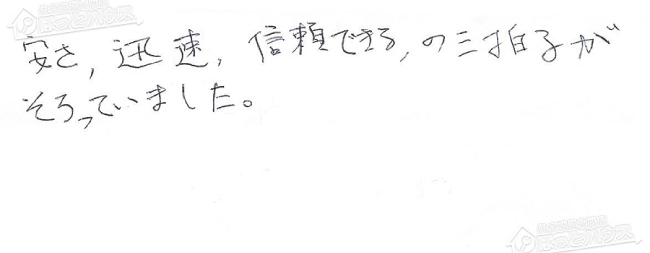 安さ, 迅速, 信頼できる, の三拍子が
そろっていました。